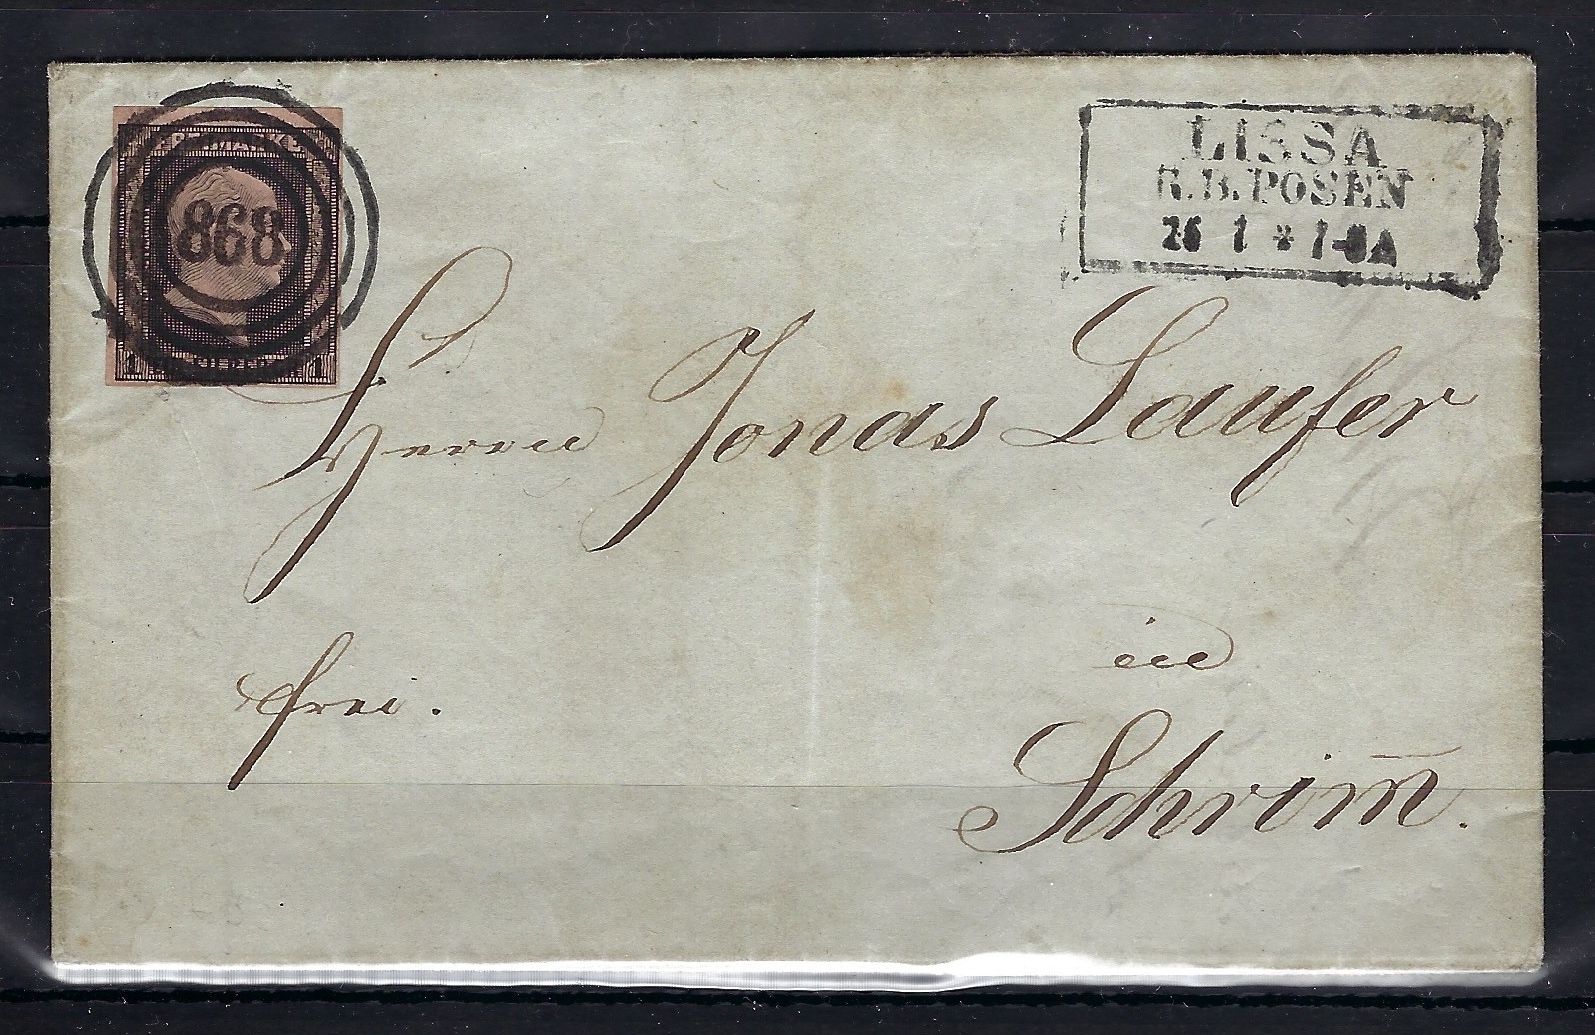 FREIMARKE
868
1 SILBERGR. 1
LISSA
R.B. POSEN
26 1 * 7-8A
Herrn Jonas Laufer
in
frei.
Schrim̄.